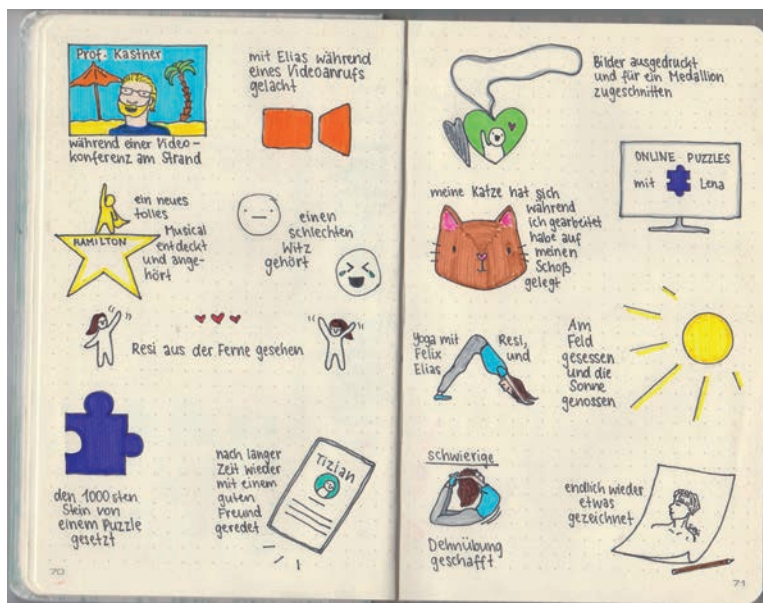 Prof. Kastner
während einer Video-
konferenz am Strand
mit Elias während
eines Videoanrufs
gelacht
HAMILTON
ein neues
tolles
Musical
entdeckt
und ange-
hört
einen
schlechten
Witz
gehört
Resi aus der Ferne gesehen
den 1000sten
Stein von
einem Puzzle
gesetzt
nach langer
Zeit wieder
mit einem
guten
Freund
geredet
Tizian
70
Bilder ausgedruckt
und für ein Medallion
zugeschnitten
ONLINE PUZZLES
mit Lena
meine Katze hat sich
während
ich gearbeitet
habe auf
meinen
Schoß
gelegt
Yoga mit Resi,
Felix und
Elias
Am
Feld
gesessen
und die
Sonne
genossen
schwierige
Dehnübung
geschafft
endlich wieder
etwas
gezeichnet
71